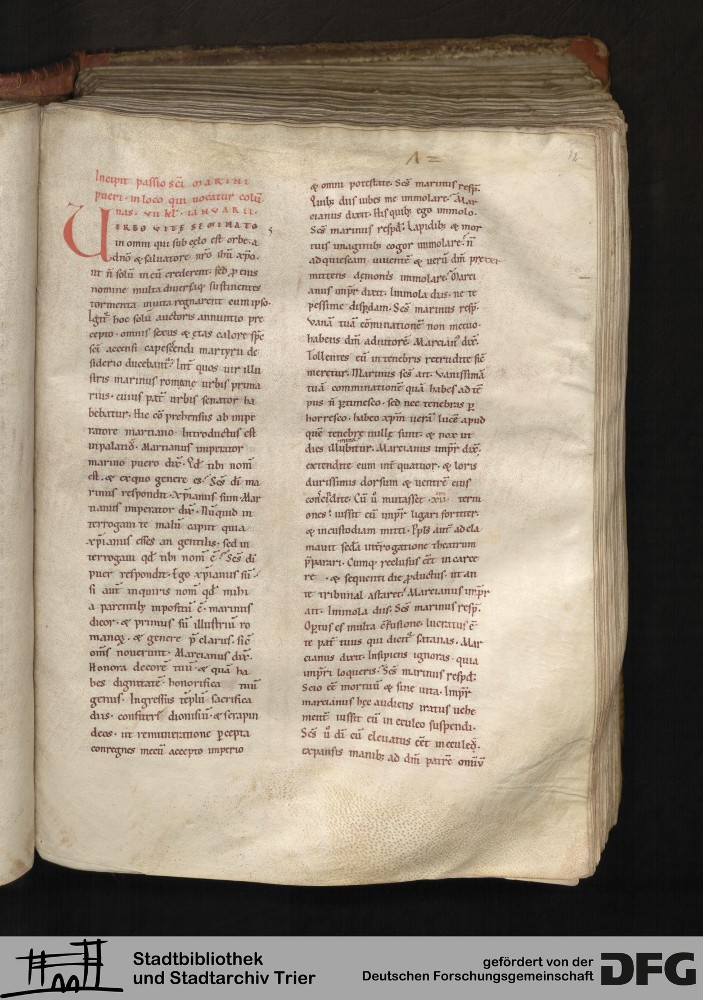 12
Incipit passio sc̄i MARINI
pueri · in loco qui vocatur colū
nas · VII kl̄ · IANVARII ·
UERBO VITĘ SEMINATO
in omni qui sub cęlo est orbe · a
dn̄o & saluatore nr̄o ihū xp̄o ·
ut n̄ solū in eū crederent · sed p eius
nomine multa diuersaq; sustinentes
tormenta inuita regnarent cum ipso ·
Igit̄ hoc solū auctoris annuntio pre
cepto · omnis sexus & ętas calore sp̄c
sc̄i accensi capescendi martyrii de
siderio ducebant̄ · Int̄ quos uir illu
stris marinus romanę urbis prima
rius · cuius pat̄ urbis senator ha
bebatur · Hic cō prehensus ab impe
ratore martiano · Introductus est
in palatiō · Martianus imperator
marino puero dix̄ · Qd̄ tibi nom̄
est · & ex quo genere es · Sc̄s dī ma
rinus respondit · xp̄ianus sum · Mar
tianus imperator dix̄ · Nūquid in
terrogaui te malū caput quia
xp̄ianus esses an gentilis · sed in
terrogaui qd̄ tibi nom̄ ē · Sc̄s dī
puer respondit · Ego xp̄ianus sū ·
si aut̄ inquiris nom̄ qd̄ mihi
a parentib; impositū ē · marinus
dicor · & primus sū illustriū ro
manoꝝ · & genere p̄ clarus · sic̄
om̄s nouerunt · Marcianus dix̄ ·
Honora decorē tuū · & quā ha
bes dignitatē · honorifica tuū
genus · Ingressus tēplū sacrifica
diis · confiteris dionisiū & serapin
deos · ut remuneratione p̄cepta
conregnes mecū accepto imperio
& omni potestate · Sc̄s marinus resp̄ ·
Quib; diis iubes me immolare · Mar
cianus dixit · His quib; ego immolo ·
Sc̄s marinus respd̄ · Lapidib; & mor
tuis imaginib; cogor immolare · n̄
adquiescam · uiuentē & uerū dm̄ preter
mittens demoniis immolare · Marci
anus imp̄r dixit · Immola diis · ne te
pessime disp̄dam · Sc̄s marinus resp̄ ·
Vanā tuā cōminationē non metuo ·
habens dm̄ adiutorē · Marcian᾽ dix̄ ·
Tollentes eū in tenebris retrudite sic̄
meretur · Marinus sc̄s ait · Vanissimā
tuā comminationē quā habes ad tē
pus n̄ p̄timesco · sed nec tenebris p̄
horresco · habeo xp̄m uerā lucē apud
quē tenebrę nullę sunt · & nox ut
dies illūbitur · Marcianus imp̄r dix̄ ·
extendite eum int̄ quatuor · & loris
durissimis dorsum & uentrē eius
concędite · Cū ū mutasset · xii · term
ones · iussit eū imp̄r ligari fortiter ·
& in custodiam mitti · Ppl̄s aut̄ ad cla
mauit sc̄da interrogatione theatrum
p̄parari · Cumq; reclusus eēt in carce
re · & sequenti die p̄ductus · ut an
te tribunal astaret · Marcianus imp̄r
ait · Immola diis · Sc̄s marinus resp̄ ·
te pat̄ tuus qui dicit̄ satanas · Mar
cianus dixit · Insipiens ignoras · quia
imp̄ri loqueris · Sc̄s marinus respd̄ ·
Scio te mortuū & sine uita · Imp̄r
marcianus hęc audiens iratus uehe
ment̄ iussit eū in eculeo suspendi ·
Sc̄s ū dī cū eleuatus eēt in eculeō ·
expansis manib; ad dm̄ patrē omīū
Stadtbibliothek
und Stadtarchiv Trier
gefördert von der
Deutschen Forschungsgemeinschaft
DFG